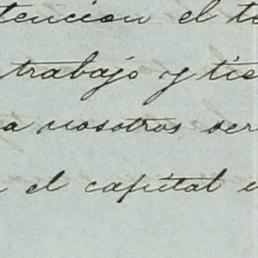 tencion el te
trabajo y tie
a nosotros ser
el capital